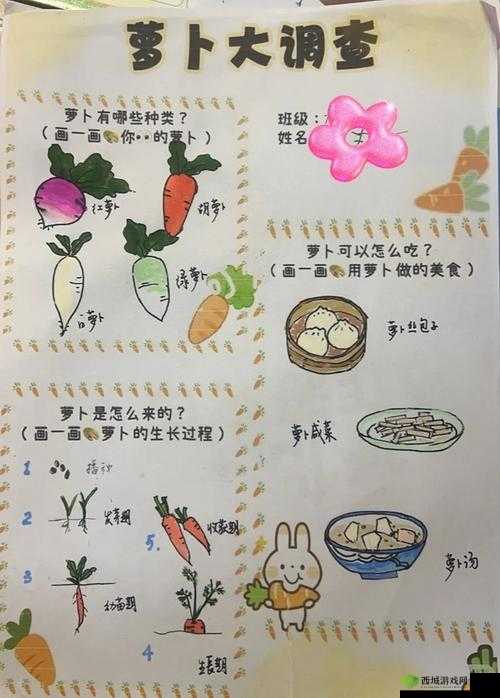 萝卜大调查
萝卜有哪些种类？
（画一画你••的萝卜）
红萝卜
胡萝卜
白萝卜
绿萝卜
班级：
姓名
萝卜可以怎么吃？
（画一画用萝卜做的美食）
萝卜丝包子
萝卜咸菜
萝卜汤
萝卜是怎么来的？
（画一画萝卜的生长过程）
1 播种
2 发芽期
3 幼苗期
4 生长期
5. 收获期
西城游戏网